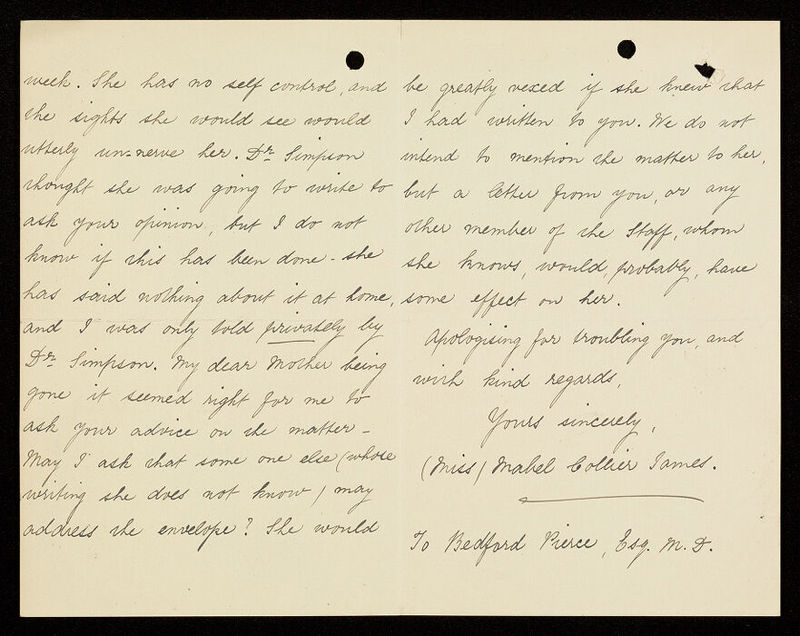 week. She has no self control, and
the sights she would see would
utterly un-nerve her. Dr. Simpson
thought she was going to write to
ask your opinion, but I do not
know if this has been done - she
has said nothing about it at home,
and I was only told privately by
Dr. Simpson. My dear Mother being
gone it seemed right for me to
ask your advice on the matter -
May I ask that some one else (whose
writing she does not know) may
address the envelope? She would
be greatly vexed if she knew that
I had written to you. We do not
intend to mention the matter to her,
but a letter from you, or any
other member of the Staff, whom
she knows, would, probably, have
some effect on her.
Apologising for troubling you, and
with kind regards,
Yours sincerely,
(Miss) Mabel Collier James.
To Bedford Pierce, Esq. M.D.